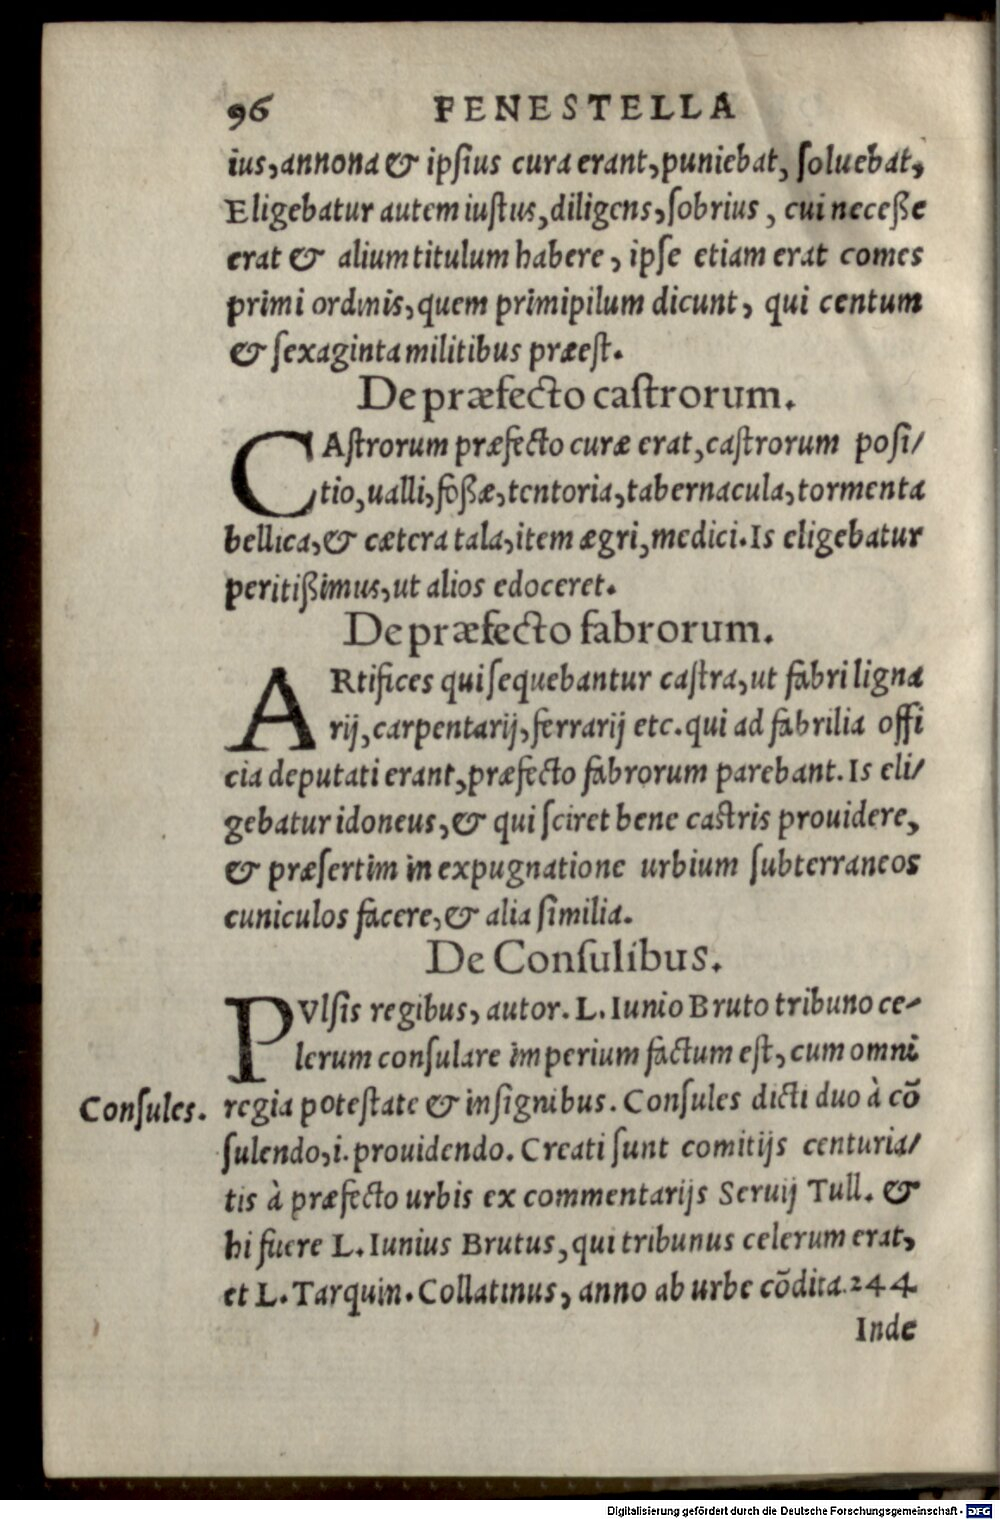 96 FENESTELLA
ius, annona & ipſius cura erant, puniebat, ſoluebat,
Eligebatur autem iuſtus, diligens, ſobrius, cui neceße
erat & alium titulum habere, ipſe etiam erat comes
primi ordinis, quem primipilum dicunt, qui centum
& ſexaginta militibus præeſt.
De præfecto caſtrorum.
CAſtrorum præfecto curæ erat, caſtrorum poſi/
tio, ualli, foßæ, tentoria, tabernacula, tormenta
bellica, & cætera tala, item ægri, medici. Is eligebatur
peritißimus, ut alios edoceret.
De præfecto fabrorum.
ARtifices qui ſequebantur caſtra, ut fabri ligna
rij, carpentarij, ferrarij etc. qui ad fabrilia offi
cia deputati erant, præfecto fabrorum parebant. Is eli/
gebatur idoneus, & qui ſciret bene caſtris prouidere,
& præſertim in expugnatione urbium ſubterraneos
cuniculos facere, & alia ſimilia.
De Conſulibus.
PVlſis regibus, autor. L. Iunio Bruto tribuno ce-
lerum conſulare imperium factum eſt, cum omni
Conſules. regia poteſtate & inſignibus. Conſules dicti duo à cõ
ſulendo, i. prouidendo. Creati ſunt comitijs centuria/
tis à præfecto urbis ex commentarijs Seruij Tull. &
hi fuere L. Iunius Brutus, qui tribunus celerum erat,
et L. Tarquin. Collatinus, anno ab urbe cõdita. 244
Inde
Digitalisierung gefördert durch die Deutsche Forschungsgemeinschaft - DFG